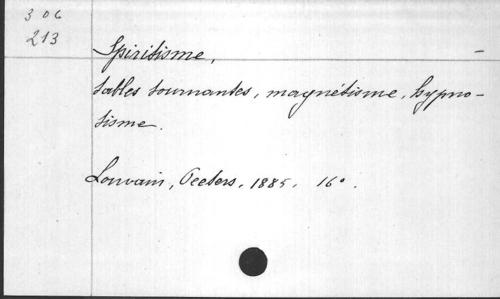 306
213
Spiritisme, —
tables tournantes, magnétisme, hypno-
tisme.
Louvain, Peeters, 1885, 16°.